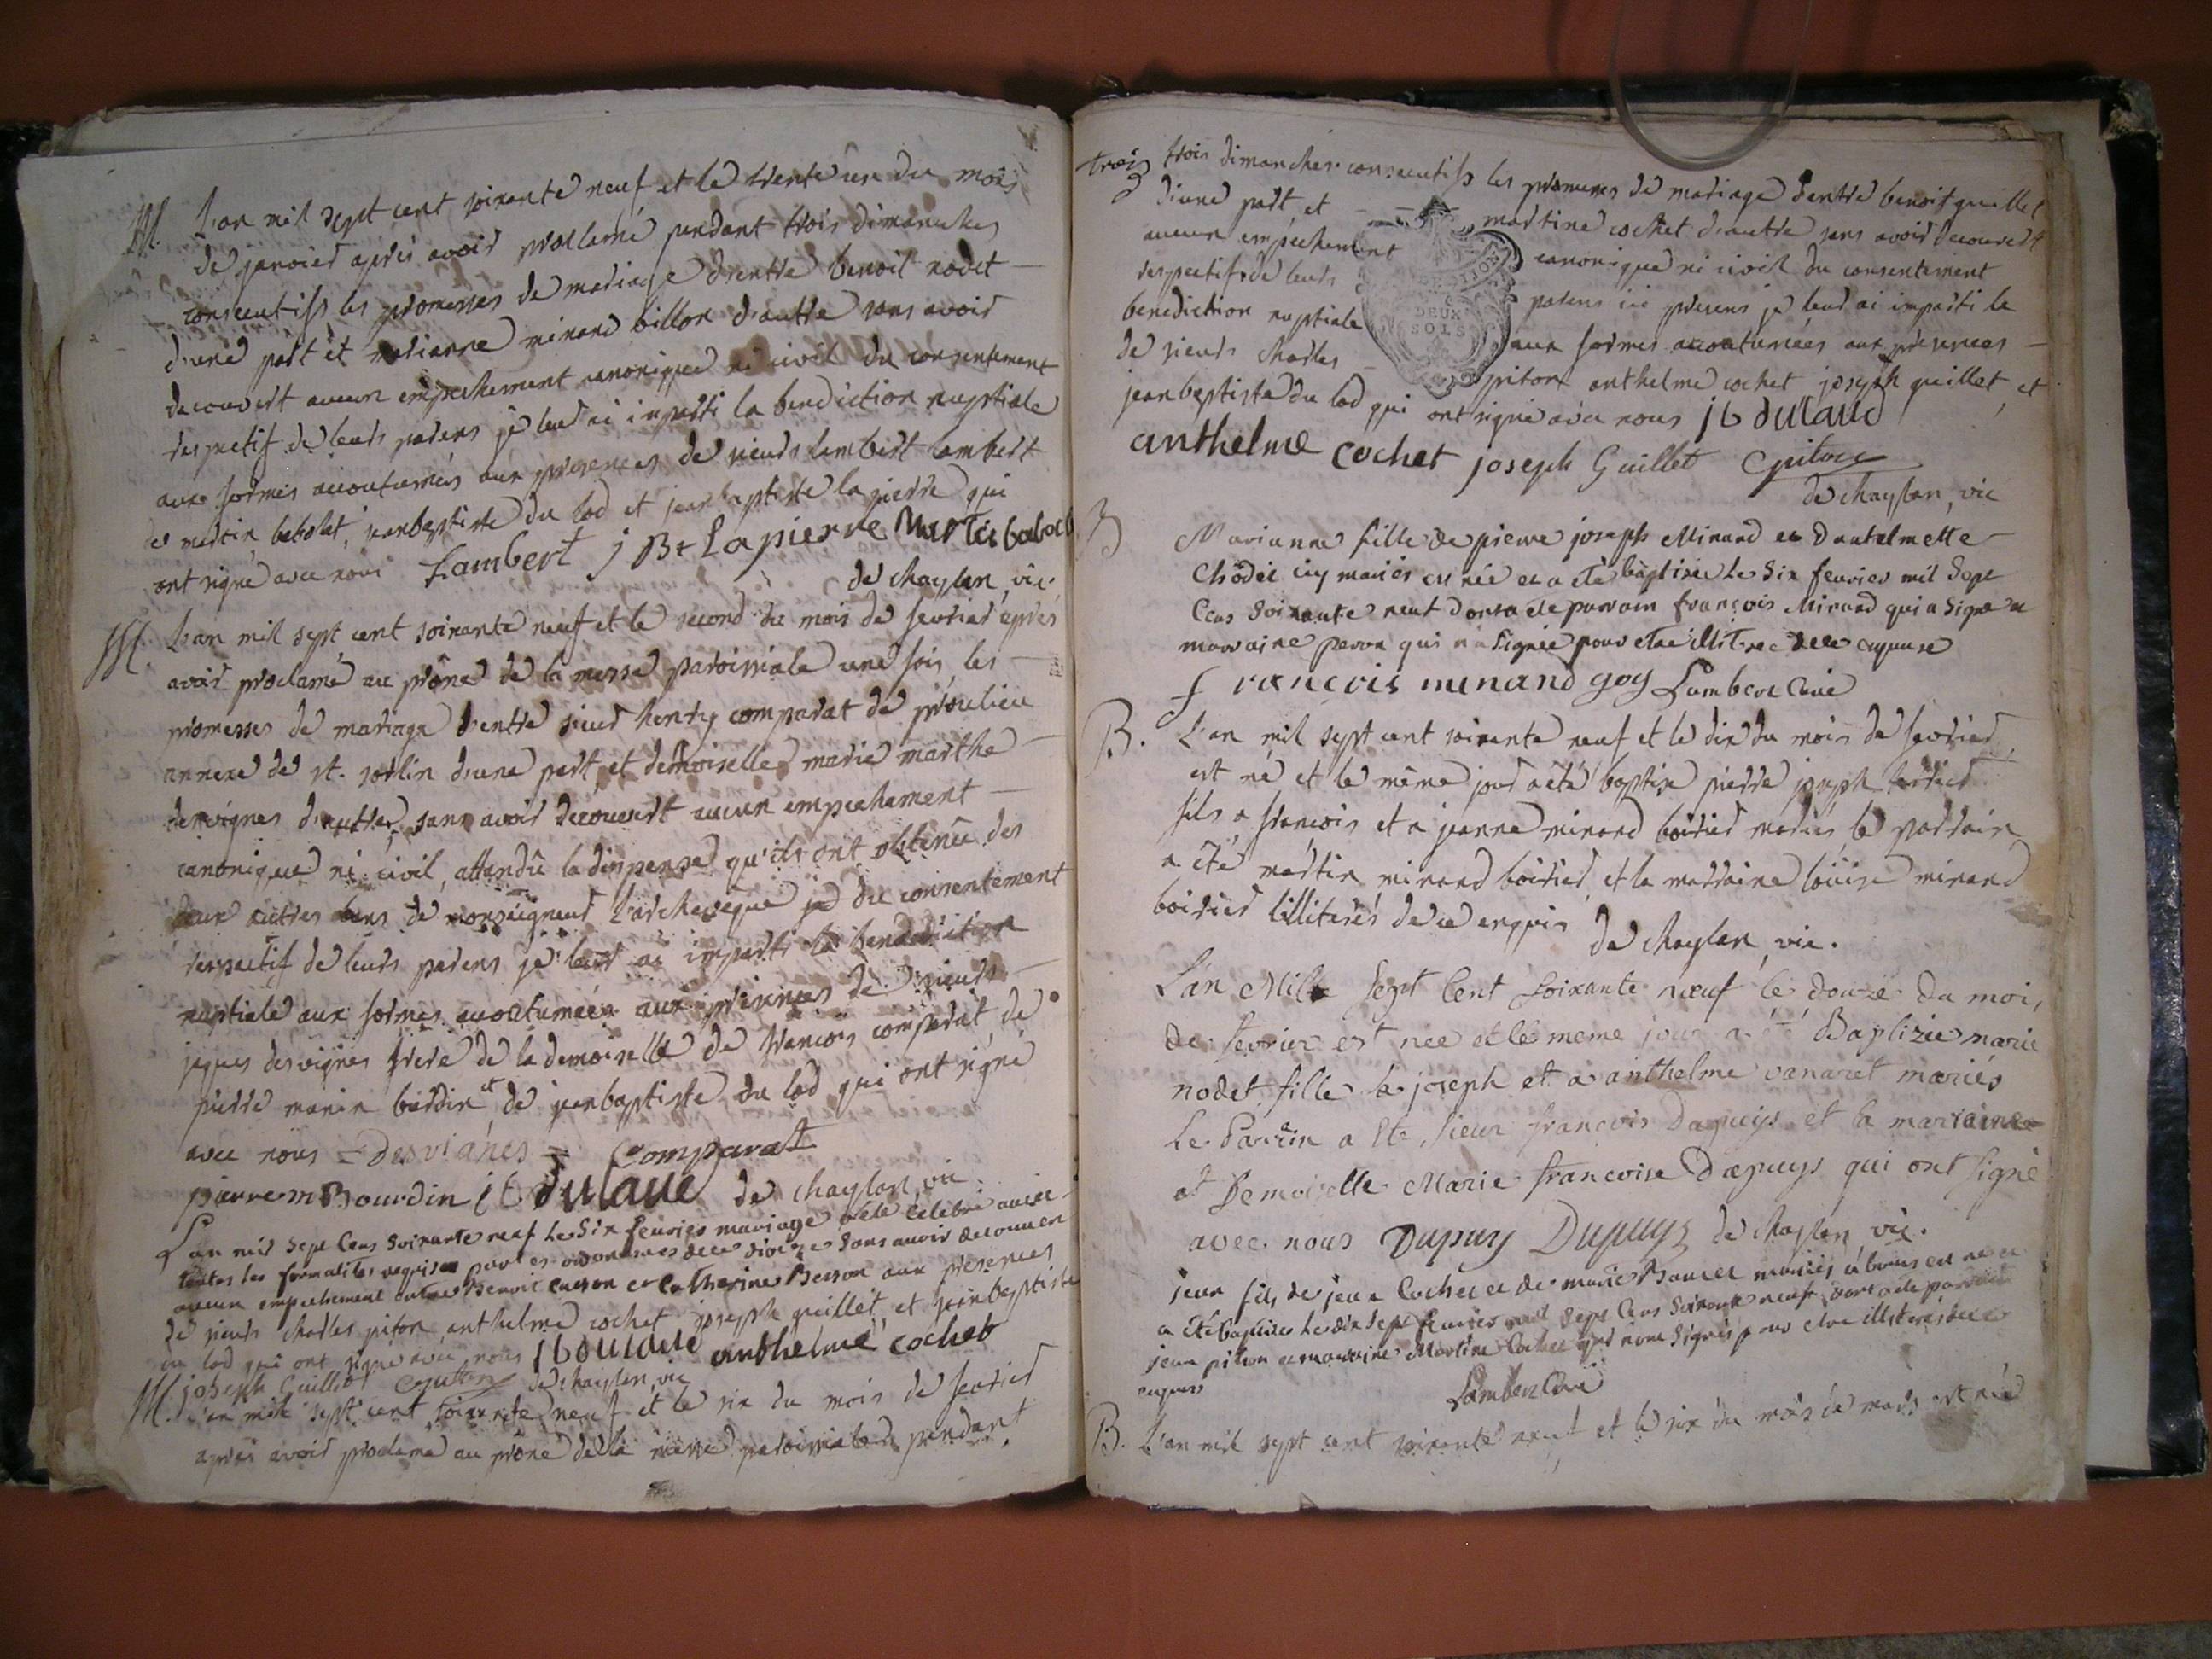 M. L'an mil sept cent soixante neuf et le trente un du mois
de janvier après avoir proclamé pendant trois dimanches
consecutifs les promesses de mariage d'entre benoit nodet
d'une part et marianne minand billon d'autre sans avoir
decouvert aucun empechement canonique ni civil du consentement
respectif de leurs parens je leur ai imparti la benediction nuptiale
aux formes accoutumées aux presences de sieurs lambert lambert
de martin babolat, jeanbaptiste du lod et jean baptiste lapierre qui
ont signé avec nous Lambert J Bt Lapierre Martin babolat
de chaylan, vic.
M. L'an mil sept cent soixante neuf et le second du mois de fevrier après
avoir proclamé au prône de la messe paroissiale une fois les
promesses de mariage d'entre sieur henry comparat de proulieu
annexe de st. sorlin d'une part et demoiselle marie marthe
desvignes d'autre, sans avoir decouvert aucun empechement
canonique ni civil, attendû la dispense qu'ils ont obtenûe des
deux autres bans de monseigneur l'archeveque du consentement
respectif de leurs parens je leur ai imparti la benediction
nuptiale aux formes accoutumées aux presences de sieurs
jaques desvignes frere de la demoiselle de francois comparat, de
pierre marin bordin et de jeanbaptiste du lod qui ont signé
avec nous = Desvignes = Comparat
pierre m Bourdin dulaud de chaylan, vic
L'an mil sept cens soixante neuf le six fevrier mariage a été celebré avec
toutes les formalites requises par les ordonances de ce diocèse sans avoir decouvert
aucun empechement entre Benoit cuison et Catherine Besson aux presences
de sieurs charles piton, anthelme cochet joseph guillet, et jeanbaptiste
du lod qui ont signé avec nous dulaud anthelme cochet
joseph Guillet Cpiton de chaylan, vic
M. L'an mil sept cent soixante neuf et le six du mois de fevrier
après avoir proclamé au prône de la messe paroissiale pendant
trois trois dimanches consecutifs les promesses de mariage d'entre benoit guillet
d'une part, et martine cochet d'autre sans avoir decouvert
aucun empechement canonique ni civil du consentement
respectif de leurs parens ici presens je leur ai imparti la
benediction nuptiale aux formes accoutumées aux presences
de sieurs charles piton anthelme cochet joseph guillet, et
jeanbaptiste du lod qui ont signé avec nous dulaud
DEUX
SOLS
anthelme cochet joseph Guillet Cpiton
de chaylan, vic
B Marianne fille de pierre joseph Minand et d'antelmette
cy mariés est née et a été baptisée le six fevrier mil sept
cens soixante neuf dont a été parrain françois Minand qui a signé et
marraine qui n'a signée pour être illiterée de ce enquise
francois minand goy Lambert Curé
B. L'an mil sept cent soixante neuf et le dix du mois de fevrier
est né et le même jour a été baptisé pierre joseph
fils a francois et a jeanne minand boirier mariés le parrain
a été martin minand boirier, et la marraine loüise minand
boirier illiterés de ce enquis de chaylan, vic.
L'an Mille Sept Cent Soixante neuf le douze du mois
de fevrier est née et le meme jour a été Baptizée marie
nodet fille a joseph et a anthelme vanaret mariés
le Parrain a Eté sieur francois Dupuys et la marraine
et Demoiselle Marie francoise Dupuys qui ont signé
avec nous Dupuy Dupuys de chaylan vic.
jean fils de jean Cochet et de marie mariés a est né et
a été baptisé le dix sept fevrier mil sept cens soixante neuf dont a été parrain
jean piton et marraine Martine Cochet qui n'ont signés pour etre illiterés de ce
enquis Lambert Curé
B. L'an mil sept cent soixante neuf et le six du mois de mars est née